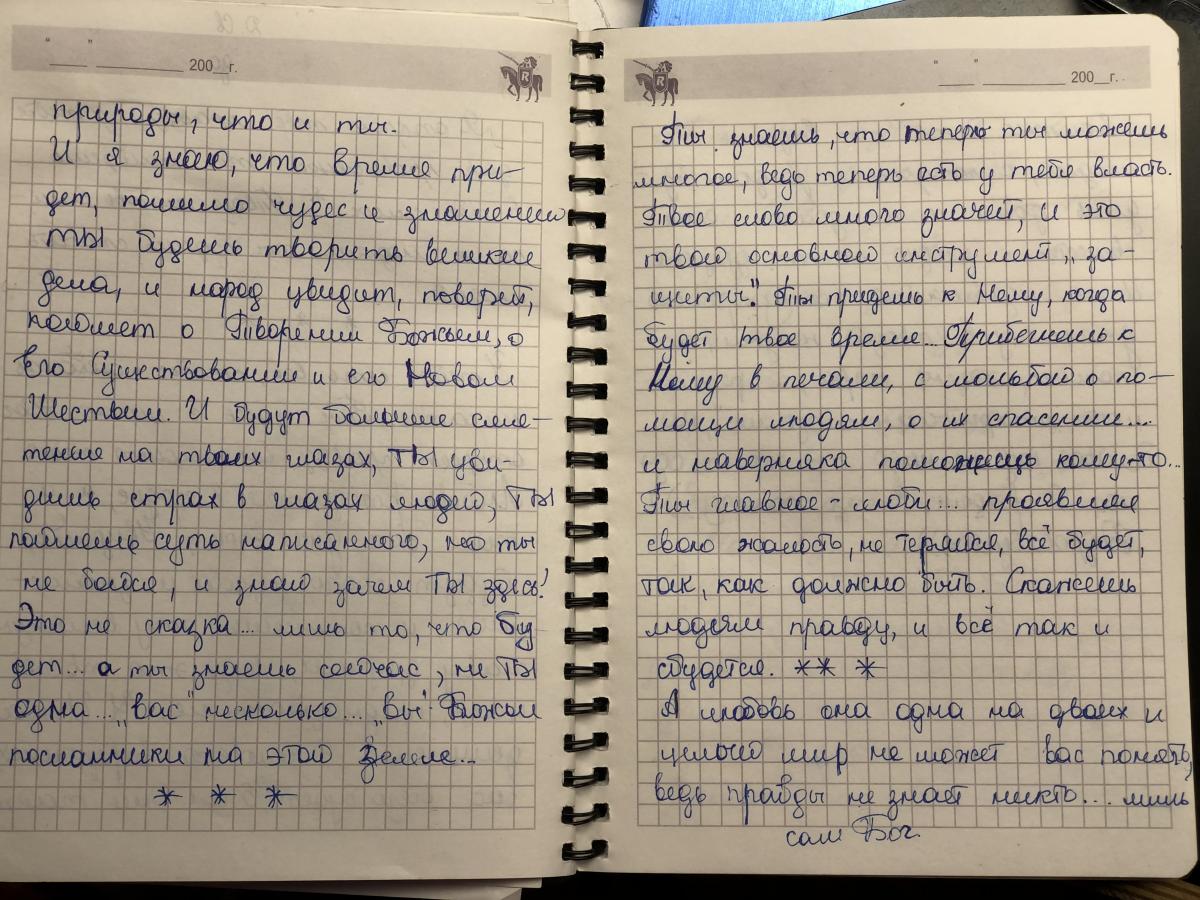 “ ” 200 г.
природы, что и ты.
И я знаю, что время при-
дет, помимо чудес и знамений
ТЫ будешь творить великие
дела, и народ увидит, поверит,
поймет о Творении Божьем, о
Его Существовании и его Новом
Шествии. И будут большие смя-
тение на твоих глазах, ТЫ уви-
дишь страх в глазах людей, ТЫ
поймешь суть написанного, но ты
не бойся, и знай зачем ТЫ здесь!
Это не сказка... лишь то, что бу
дет... а ты знаешь сейчас, не ТЫ
одна... „вас" несколько... „вы" Божьи
посланники на этой Земле...
* * *
“ ” 200 г.
Ты знаешь, что теперь ты можешь
многое, ведь теперь есть у тебя власть.
Твое слово много значит, и это
твой основной инструмент „за-
щиты". Ты придешь к Нему, когда
будет твое время... Прибегнешь к
Нему в печали, с мольбой о по-
мощи людям, о их спасении...
и наверняка поможешь кому-то...
Ты главное - люби... проявляя
свою жалость, не теряйся, всё будет,
так, как должно быть. Скажешь
людям правду, и всё так и
сбудется. ** *
А любовь она одна на двоих и
целый мир не может вас понять,
ведь правды не знает никто... лишь
сам Бог.